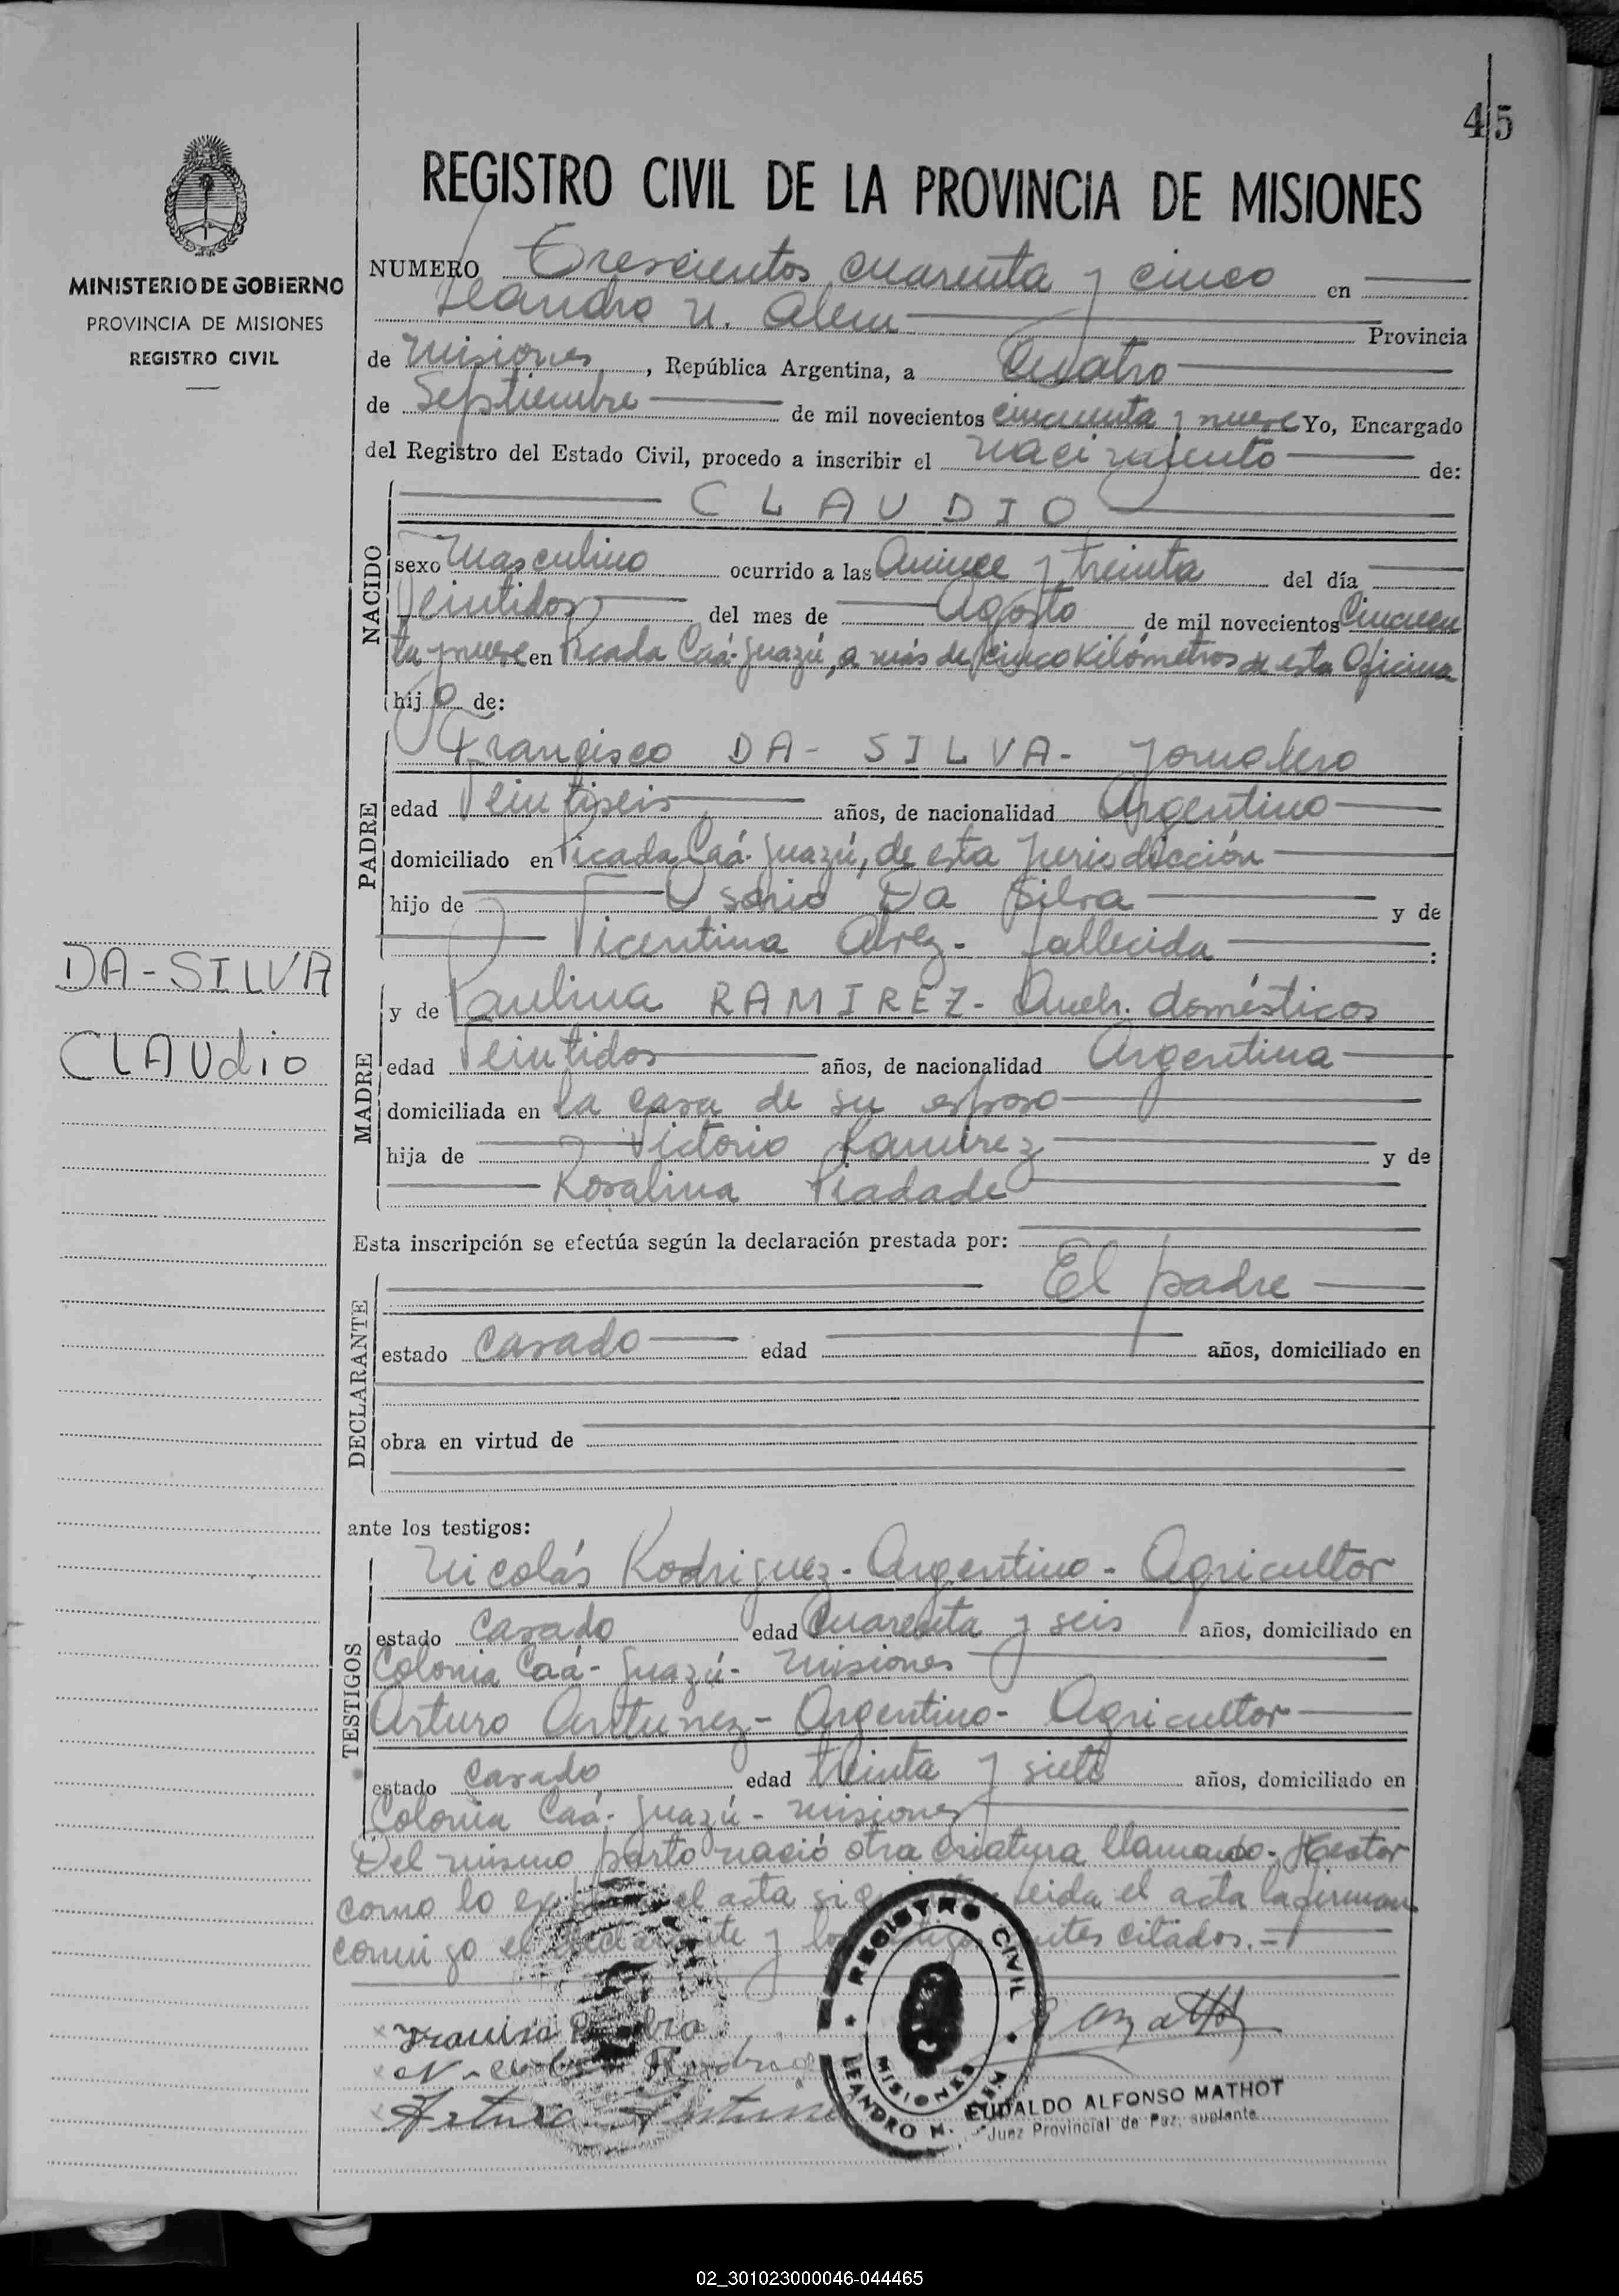 45
REGISTRO CIVIL DE LA PROVINCIA DE MISIONES
MINISTERIO DE GOBIERNO
PROVINCIA DE MISIONES
REGISTRO CIVIL
NUMERO Trescientos cuarenta y cinco en
Leandro N. Alem Provincia
de Misiones, República Argentina, a Cuatro
de Septiembre de mil novecientos cincuenta y nueve Yo, Encargado
del Registro del Estado Civil, procedo a inscribir el nacimiento de:
NACIDO
CLAUDIO
sexo Masculino ocurrido a las Quince y treinta del día
Veintidos del mes de Agosto de mil novecientos Cincuen
ta y nueve en Picada Caá-Guazú, a más de cinco Kilómetros de esta Oficina
hijo de:
PADRE
Francisco DA-SILVA- Jornalero
edad Veintiseis años, de nacionalidad Argentino
domiciliado en Picada Caá-Guazú, de esta Jurisdicción
hijo de Osorio Da Silva y de
Vicentina Alvez- fallecida :
DA-SILVA
CLAUdio
MADRE
y de Paulina RAMIREZ- Queh. domésticos
edad Veintidos años, de nacionalidad Argentina
domiciliada en la casa de su esposo
hija de Victorio Ramirez y de
Rosalina Piadade
Esta inscripción se efectúa según la declaración prestada por:
DECLARANTE
El padre
estado Casado edad años, domiciliado en
obra en virtud de
ante los testigos:
TESTIGOS
Nicolás Rodriguez- Argentino- Agricultor
estado Casado edad Cuarenta y seis años, domiciliado en
Colonia Caá-Guazú- Misiones
Arturo Antunez- Argentino- Agricultor
estado Casado edad treinta y siete años, domiciliado en
Colonia Caá-Guazú- Misiones
Del mismo parto nació otra criatura llamado- Hector
como lo el acta leida el acta la firman
conmigo el declarante y los citados.-
REGISTRO CIVIL
MISIONES
LEANDRO N. ALEM
Arturo
EUDALDO ALFONSO MATHOT
Juez Provincial de Paz, suplente
02_301023000046-044465